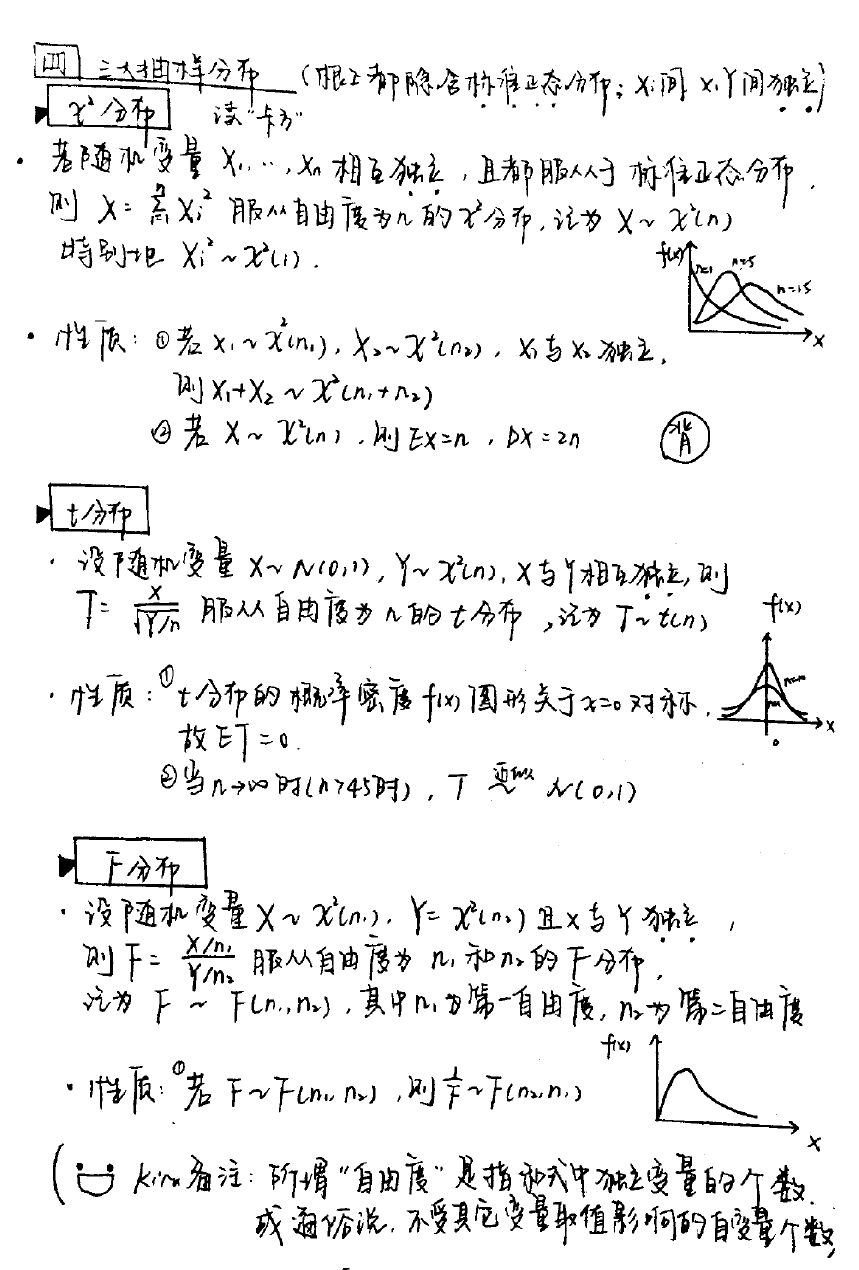 四 三大抽样分布 (根上都隐含标准正态分布; Xi间 X,Y间独立)
χ²分布 读"卡方"
· 若随机变量 X₁,…,Xn 相互独立, 且都服从于标准正态分布,
则 X=∑Xi² 服从自由度为n的χ²分布, 记为 X~χ²(n)
特别地 Xi²~χ²(1).
f(x) n=1 n=5 n=15 x
· 性质: ①若 X₁~χ²(n₁), X₂~χ²(n₂), X₁与X₂独立,
则 X₁+X₂~χ²(n₁+n₂)
②若 X~χ²(n), 则 EX=n, DX=2n 背
t分布
· 设随机变量 X~N(0,1), Y~χ²(n), X与Y相互独立, 则
T= X/√(Y/n) 服从自由度为n的t分布, 记为 T~t(n)
f(x)
· 性质: ①t分布的概率密度f(x)图形关于x=0对称,
x 0
故 ET=0.
②当n→∞时(n>45时), T 近似~ N(0,1)
F分布
· 设随机变量 X~χ²(n₁), Y=χ²(n₂) 且X与Y独立,
则 F= (X/n₁)/(Y/n₂) 服从自由度为 n₁和n₂的F分布,
记为 F ~ F(n₁,n₂), 其中n₁为第一自由度, n₂为第二自由度
f(x) x
· 性质: ①若 F~F(n₁,n₂), 则 1/F~F(n₂,n₁)
( 备注: 所谓"自由度"是指和式中独立变量的个数.
或通俗说, 不受其它变量取值影响的自变量个数)